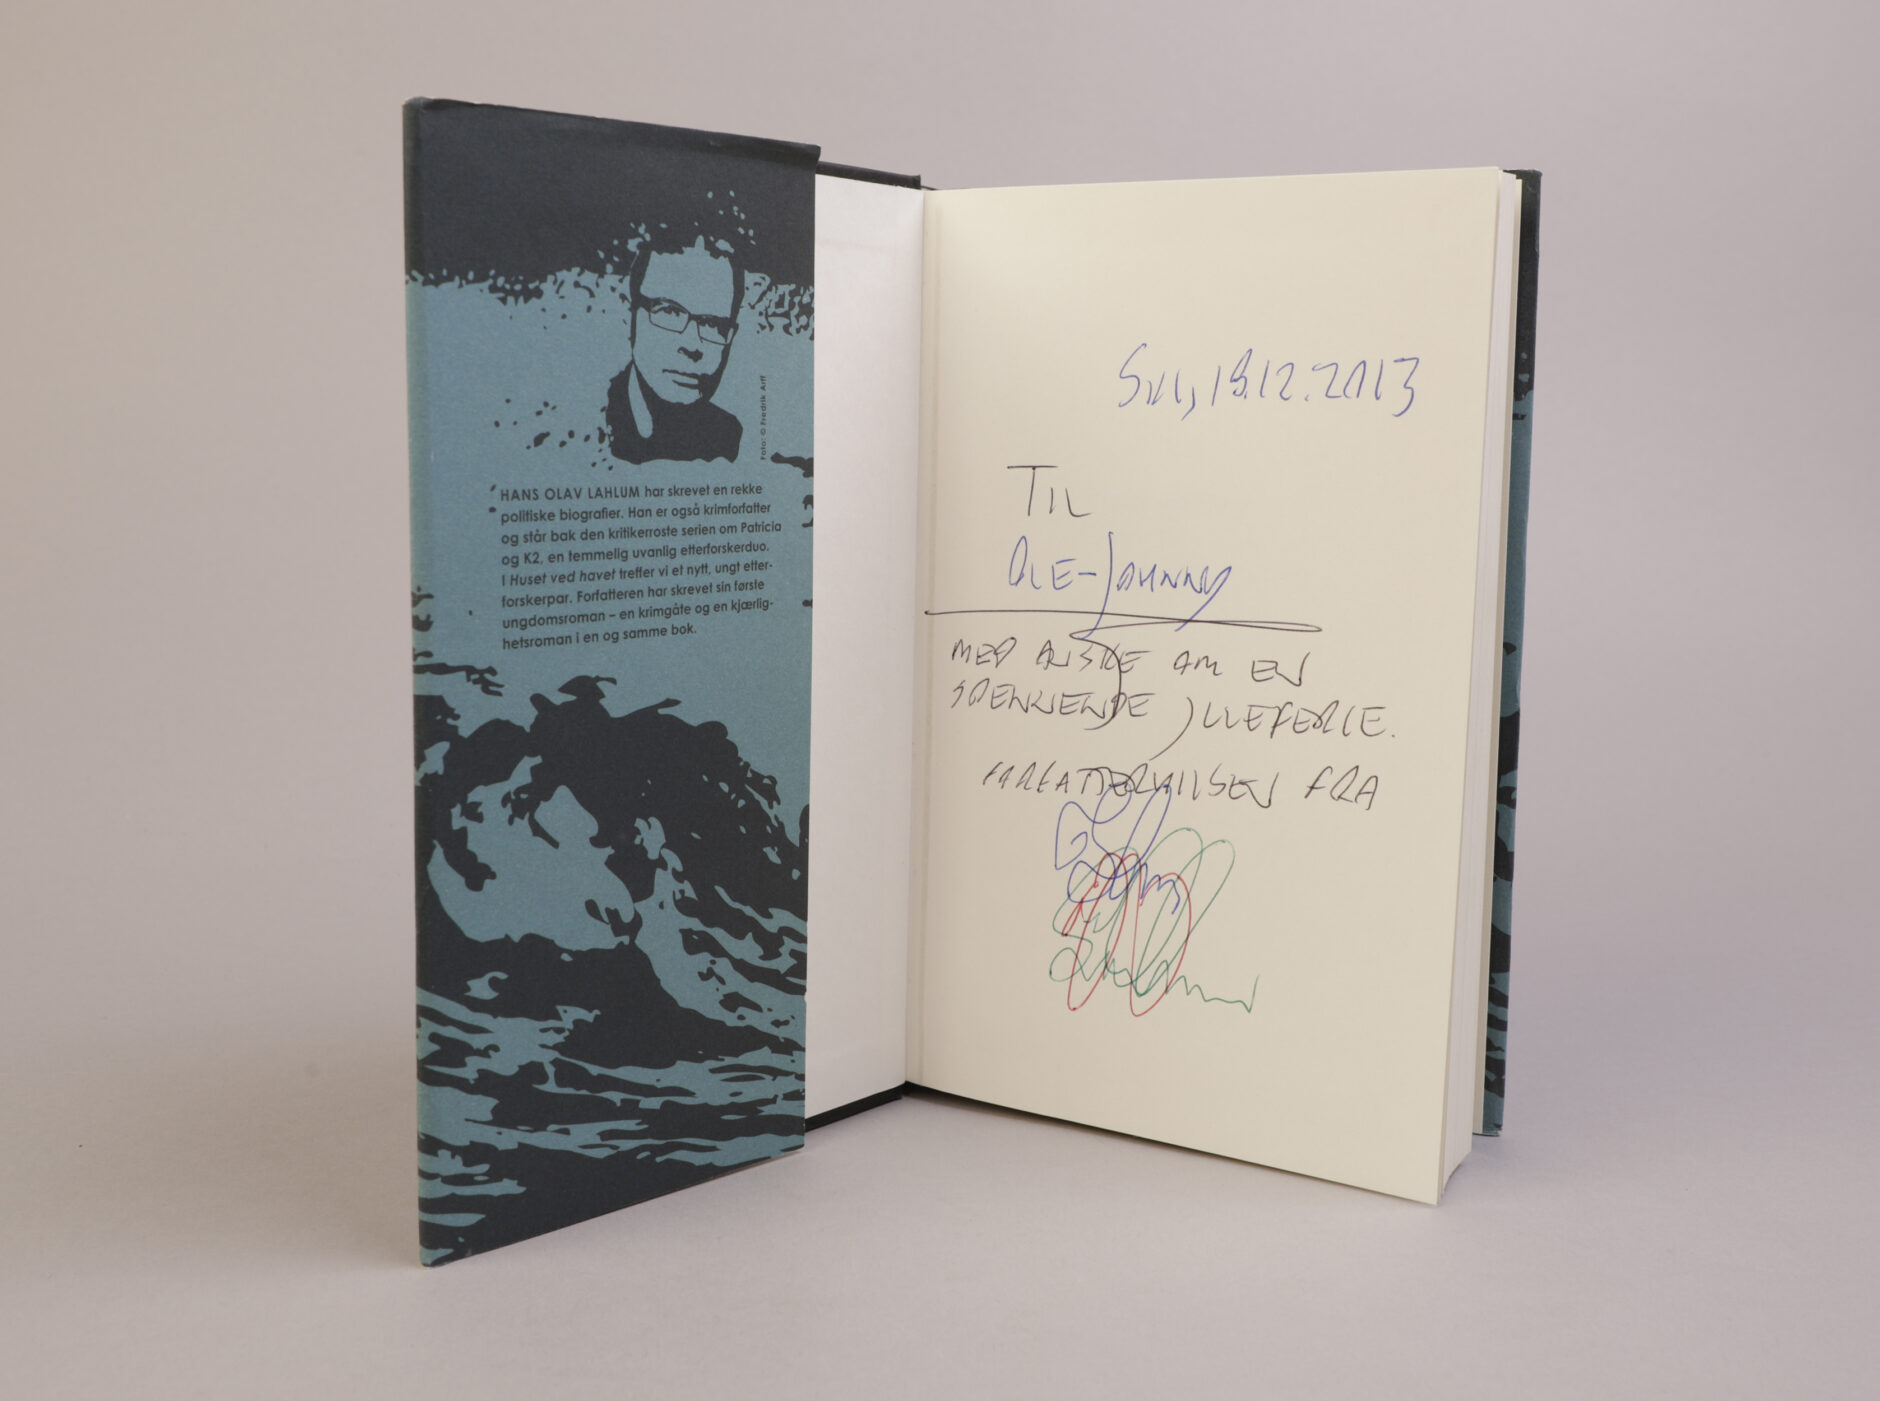 Foto: © Fredrik Arff
HANS OLAV LAHLUM har skrevet en rekke
politiske biografier. Han er også krimforfatter
og står bak den kritikerroste serien om Patricia
og K2, en temmelig uvanlig etterforskerduo.
I Huset ved havet treffer vi et nytt, ungt etter-
forskerpar. Forfatteren har skrevet sin første
ungdomsroman – en krimgåte og en kjærlig-
hetsroman i en og samme bok.
18.12.2013
TIL
OLE-JOHNNY
MED ØNSKE OM EN
SPENNENDE JULEFERIE.
FORFATTERHILSEN FRA